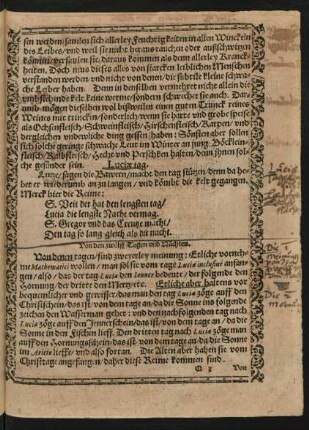 sen werden/samlen sich allerley Feuchtigkeiten in allen Winckeln
des Leibes/vnd weil sie nicht heraus rauchen oder auffschwitzen
können/verfaulen sie/daraus kommen als denn allerley Kranck-
heiten. Doch mus dieses alles von starcken leiblichen Menschen
verstanden werden vnd nicht von denen/die subtile kleine schwa-
che Leiber haben. Denn in denselben vermehret nicht allein die
vmbstehende kelte keine werme sondern schwechet sie auch. Dar-
umb mögen dieselben wol bisweilen einen guten Trunck reines
Weines mit trincken/sonderlich/wenn sie harte vnd grobe speise
als Ochsenfleisch/Schweinefleisch/Hirschenfleisch/Karpen/vnd
dergleichen vnderwliche ding gessen haben: Sonsten aber sollen
sich solche geringe schwache Leut im Winter an jung Böcklein-
fleisch/Kalbfleisch/Hecht vnd Perschken halten/denn jhnen sol-
che gesünder sein. Lucia tag.
Lucie/sagen die Bawren/mache den tag stützen/denn da he-
bet er widerumb an zu langen/vnd kömbt die kelt gegangen.
Merck hier die Reime:
S. Veit der hat den lengsten tag/
Lucia die lengste Nacht vermag.
S. Gregor vnd das Creutze macht/
Den tag so lang gleich als die nacht.
Von den zwölff Tagen vnd Nächten.
Von denen tagen/sind zweyerley meinung: Etliche vorneh-
me Mathematici wollen/man sol sie von tage Luciæ inclusivè anfan-
gen/also/das der tag Luciæ den Jenner bedeute/der folgende den
Hornung/der dritte den Mertz/etc. Etliche aber haltens vor
bequemlicher vnd gewisser/das man den tag Luciæ zöge auff den
Christschein/das ist: von dem tage an/da die Sonne ins folgende
zeichen den Wasserman gehet: vnd den nachfolgenden tag nach
Lucia zöge auff den Jennerschein/das ist/von dem tage an/da die
Sonne in den Fischen lieff. Den dritten tag nach Lucia zöge man
auff den Hornungsschein/das ist: von dem tage an/da die Sonne
im Ariete lieffe/vnd also fortan. Die Alten aber haben sie vom
Christtage angefangen/daher diese Reime kommen sind.
Von
Die